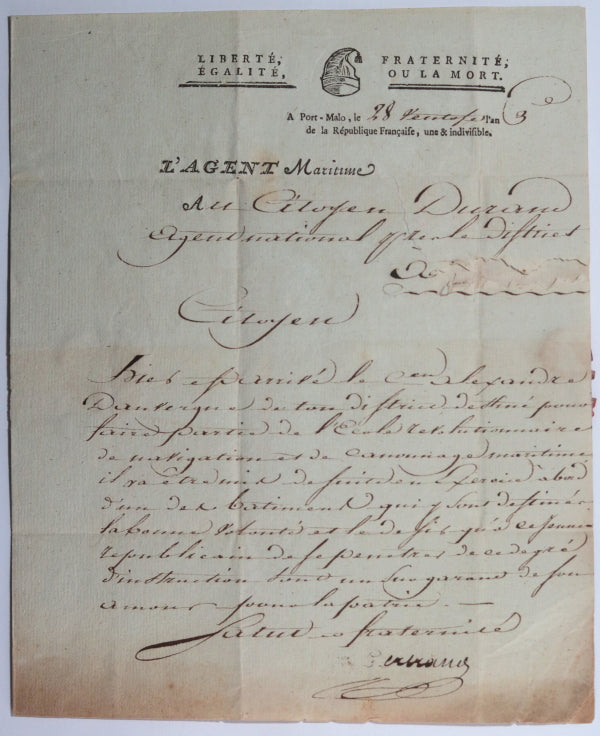 LIBERTÉ,
ÉGALITÉ,
FRATERNITÉ,
OU LA MORT.
A Port-Malo, le 28 Ventose l'an 3e
de la République Française, une & indivisible.
L'AGENT Maritime
Au Citoyen Durand
Agent national près le district
de
Citoyen
Hier est arrivé le Cen alexandre
Dauvergne de ton district destiné pour
faire partie de l'Ecole revolutionnaire
de navigation et de canonnage maritime
il va être mis de suite en Exercice à bord
d'un des batiments qui y sont destinés.
la bonne volonté et le desir qu'a ce jeune
republicain de se penetrer de ce degré
d'instruction sont un sur garand de son
amour pour la patrie. —
Salut et fraternité
Bertrand